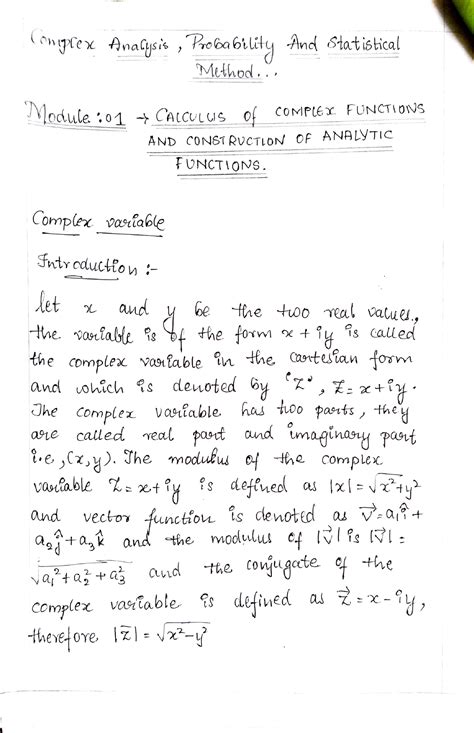 Complex Analysis, Probability And Statistical
Method...
Module:01 → CALCULUS of COMPLEX FUNCTIONS
AND CONSTRUCTION OF ANALYTIC
FUNCTIONS.
Complex variable
Introduction :-
let x and y be the two real values,
the variable is of the form x+iy is called
the complex variable in the cartesian form
and which is denoted by 'Z', Z=x+iy.
The complex variable has two parts, they
are called real part and imaginary part
i.e,(x,y). The modulus of the complex
variable Z=x+iy is defined as |x|=√x²+y²
and vector function is denoted as V⃗=a₁î+
a₂ĵ+a₃k̂ and the modulus of |V⃗| is |V⃗|=
√a₁²+a₂²+a₃² and the conjugate of the
complex variable is defined as z⃗=x-iy,
therefore |z̅|=√x²-y²